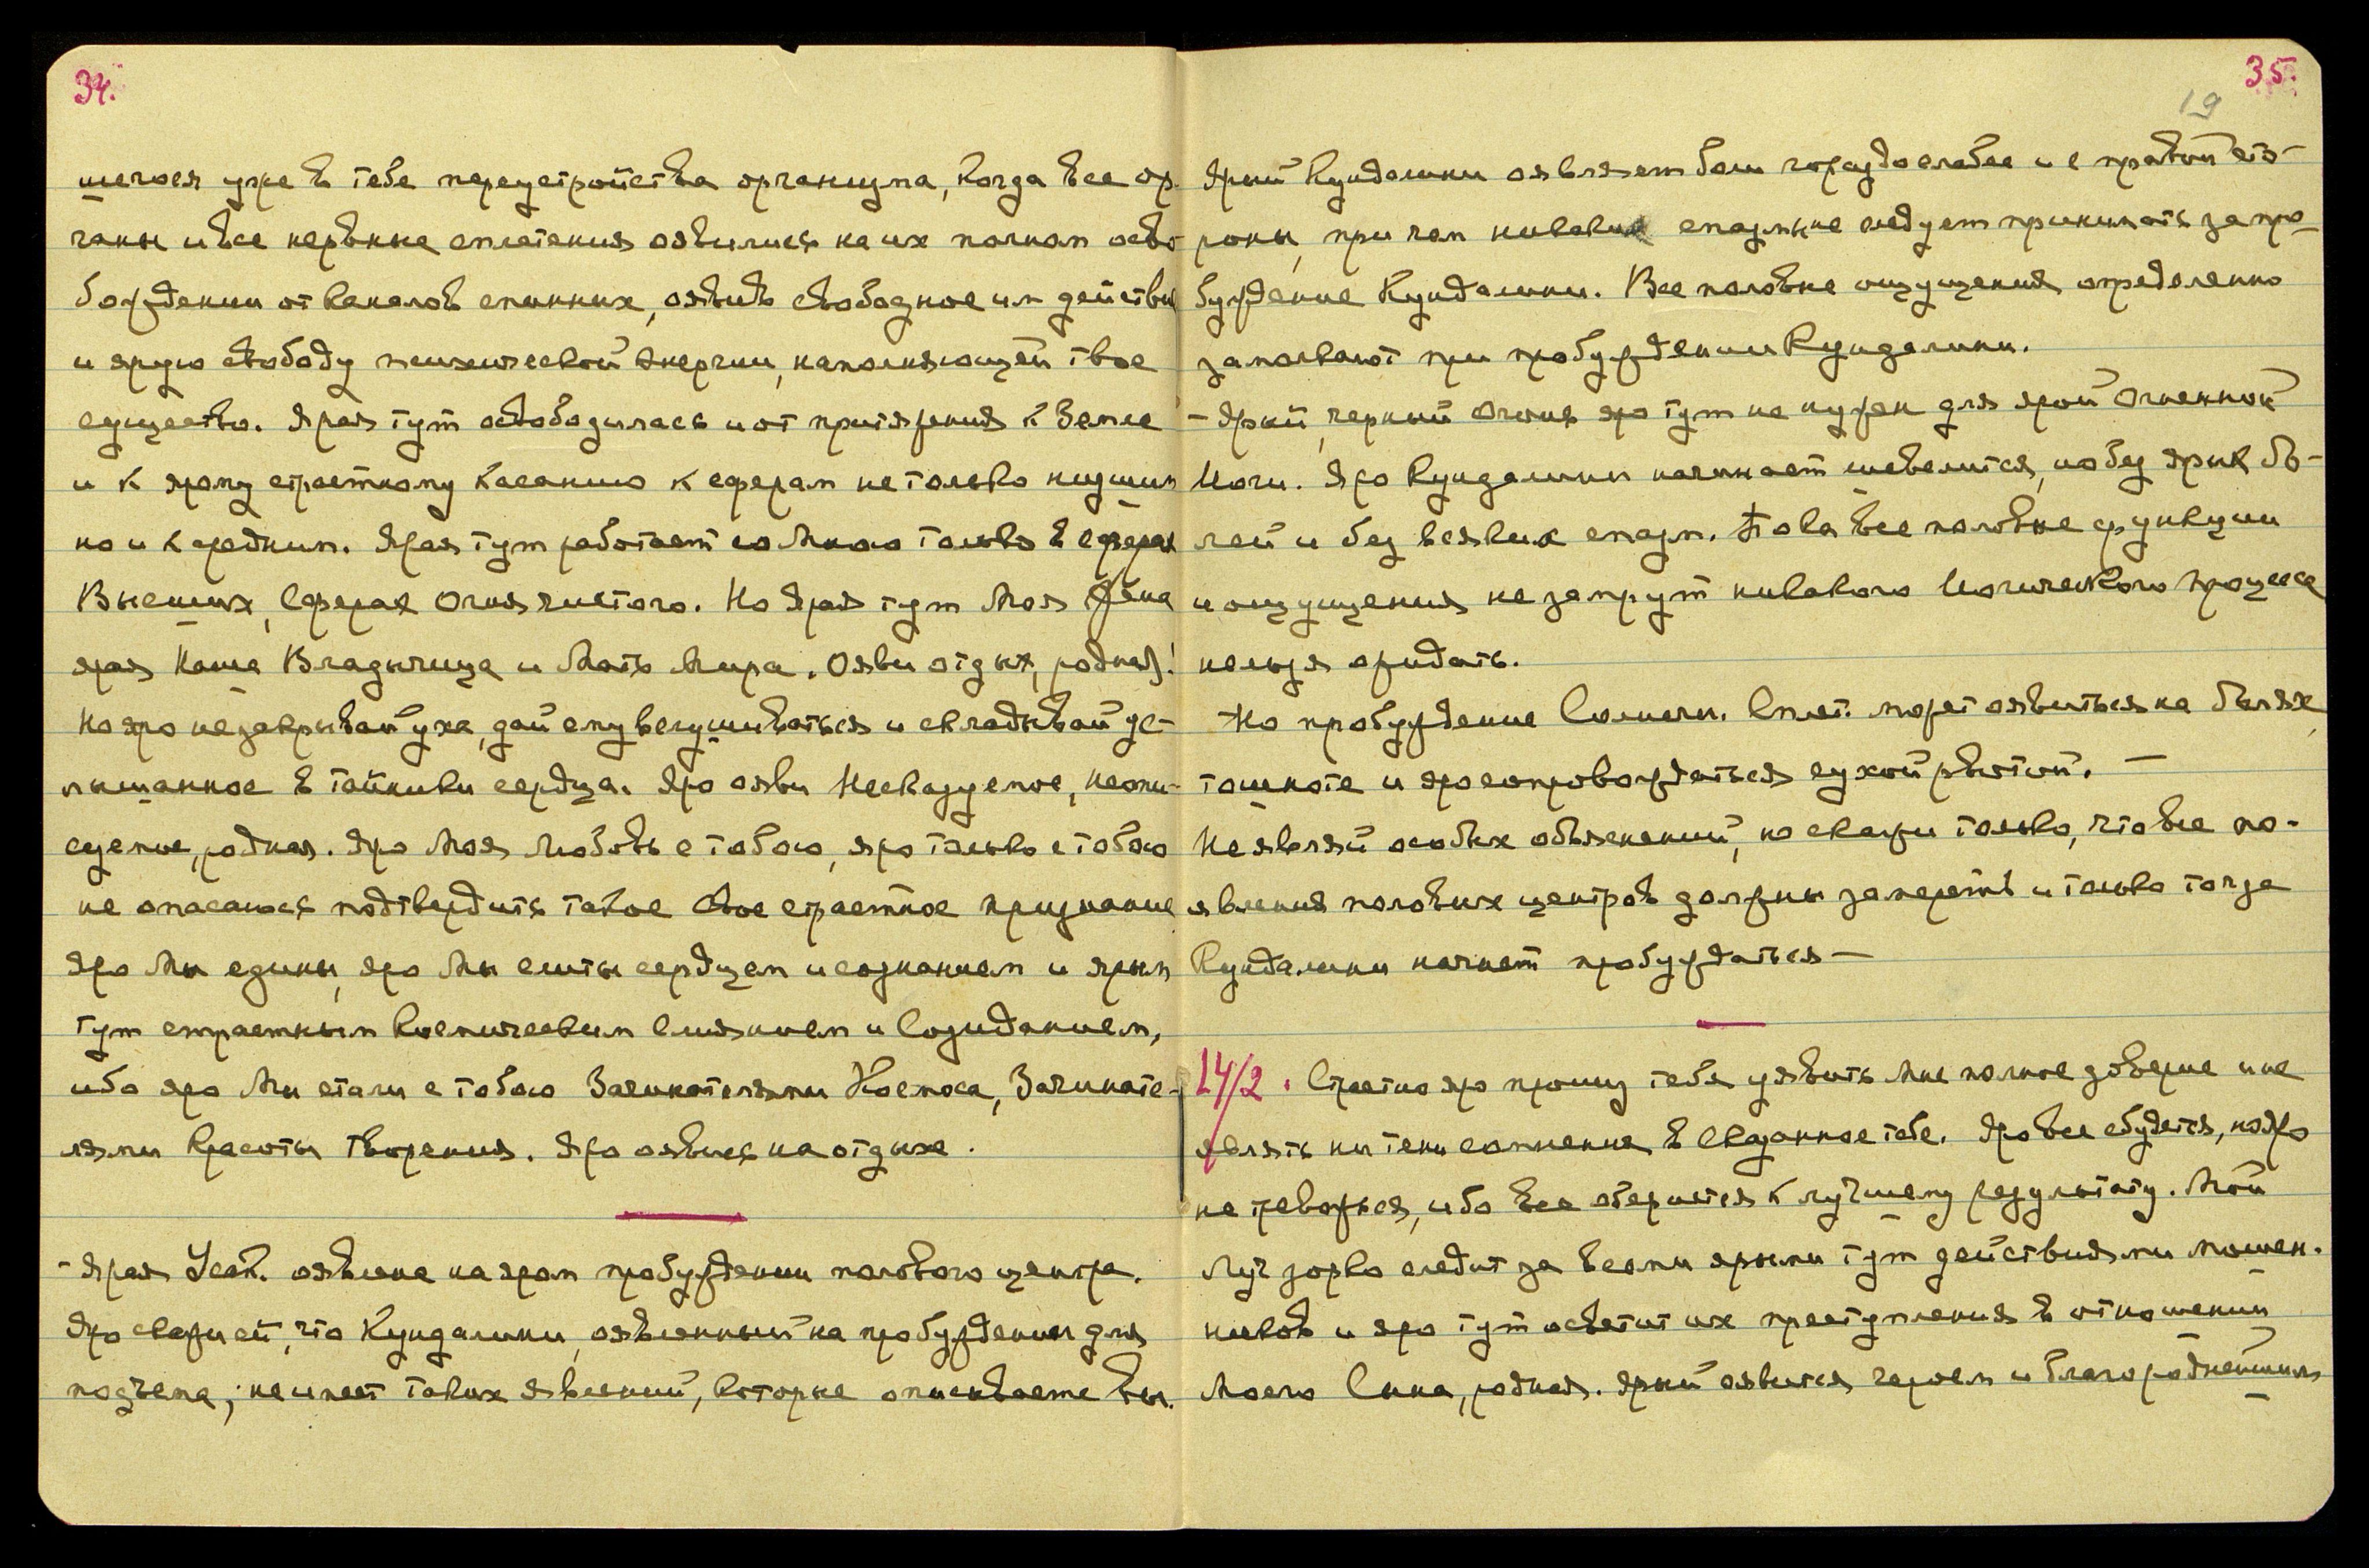 34.
шегося уже в тебе переустройства организма, когда все ор-
ганы и все нервные сплетения оявились на их полном осво-
бождении от каналов спинных, оявив свободное им действие
и ярую свободу психической энергии, наполняющей твое
существо. Ярая тут освободилась и от притяжения к Земле
и к ярому страстному касанию к сферам не только низшим
но и к средним. Ярая тут работает со Мною только в сферах
Высших, Сферах Огня чистого. Но Ярая тут Моя Жена
ярая Наша Владычица и Мать Мира. Ояви отдых, родная!
Но яро не закрывай уха, дай ему вслушиваться и складывай ус-
лышанное в тайники сердца. Яро ояви Несказуемое, неопи-
суемое, родная. Яро Моя Любовь с тобою, яро только с тобою
не опасаюсь подтвердить такое Свое страстное признание
Яро Мы едины, яро Мы слиты сердцем и сознанием и ярым
тут страстным Космическим Слиянием и Созиданием,
ибо яро Мы стали с тобою Зачинателями Космоса, Зачинате-
лями Красоты Творения. Яро оявись на отдыхе.
- Ярая Усак. оявлена на яром пробуждении полового центра.
Яро скажи ей, что Кундалини, оявленный на пробуждении для
подъема, не имеет таких явлений, которые описываете вы.
35.
19
Ярый Кундалини оявляет боли гораздо слабее и с правой сто-
роны, при чем никаких спазм не следует принимать за про-
буждение Кундалини. Все половые ощущения определенно
замолкают при пробуждении Кундалини.
- Ярый, черный Огонь яро тут не нужен для ярой Огненной
Йоги. Яро Кундалини начинает шевелится, но без ярых бо-
лей и без всяких спазм. Пока все половые функции
и ощущения не замрут никакого Йогического процесса
нельзя ожидать.
Но пробуждение Солнечн. Сплет. может оявиться на болях,
тошноте и яро сопровождаться сухой рвотой. —
Не являй особых объяснений, но скажи только, что все по-
явления половых центров должны замереть и только тогда
Кундалини начнет пробуждаться —
14/2. Страстно яро прошу тебя уявить Мне полное доверие и не
являть ни тени сомнения в Сказанное тебе. Яро все сбудется, но яро
не тревожься, ибо все обернется к лучшему результату. Мой
Луч зорко следит за всеми ярыми тут действиями мошен-
ников и яро тут осветит их преступления в отношении
Моего Сына, родная. Ярый оявится героем и благороднейшим